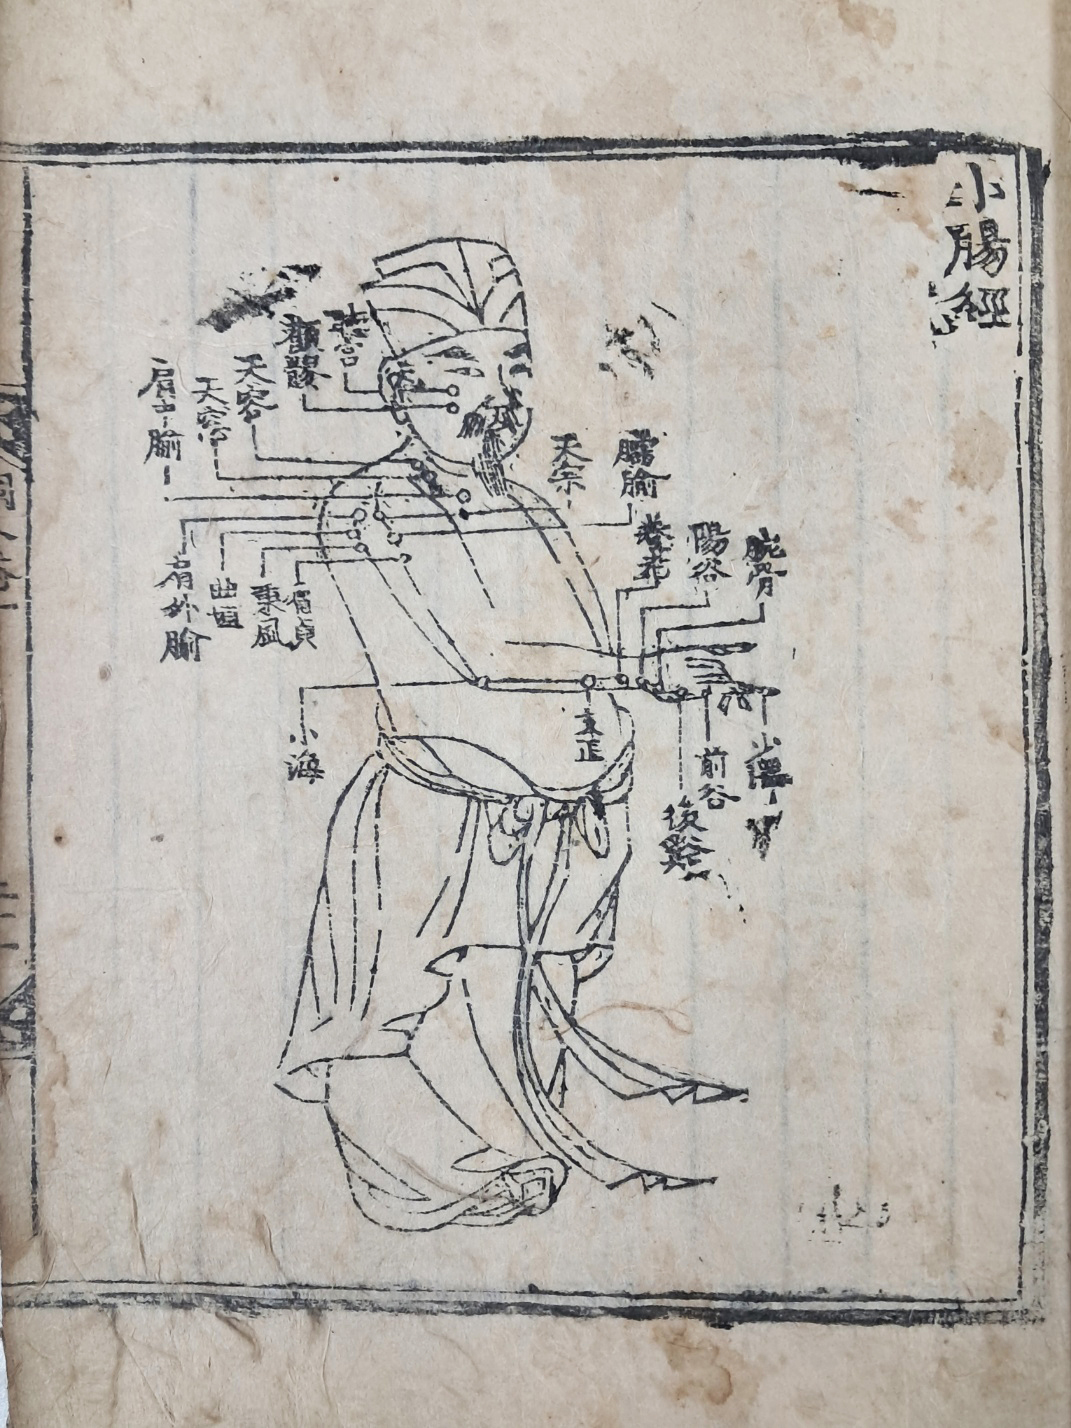 小腸經
腕骨
陽谷
養老
臑腧
天宗
顴髎
天容
天窓
肩中腧
肩外腧
曲垣
秉風
肩貞
小海
支正
後谿
前谷
少澤